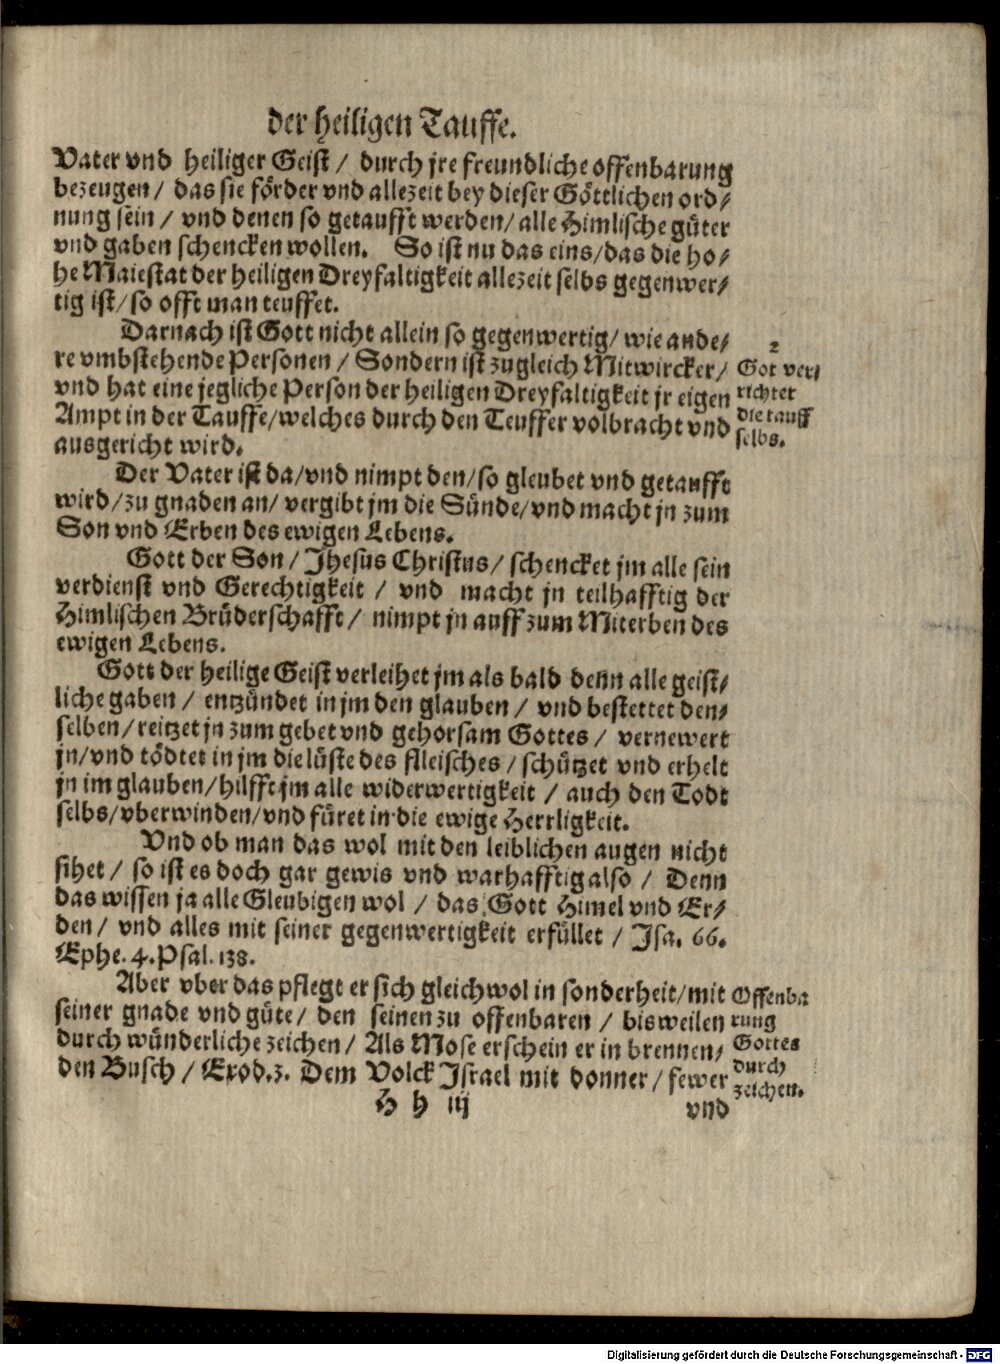 der heiligen Tauffe.
Vater vnd heiliger Geist / durch jre freundliche offenbarung
bezeugen / das sie förder vnd allezeit bey dieser Göttlichen ord/
nung sein / vnd denen so getaufft werden / alle Himlische güter
vnd gaben schencken wollen. So ist nu das eins / das die ho/
he Maiestat der heiligen Dreyfaltigkeit allezeit selbs gegenwer/
tig ist / so offt man teuffet.
Darnach ist Gott nicht allein so gegenwertig / wie ande/
re vmbstehende Personen / Sondern ist zugleich Mitwircker /
vnd hat eine jegliche Person der heiligen Dreyfaltigkeit jr eigen
Ampt in der Tauffe / welches durch den Teuffer volbracht vnd
ausgericht wird.
2
Got ver/
richter
die tauff
selbs.
Der Vater ist da / vnd nimpt den / so gleubet vnd getaufft
wird / zu gnaden an / vergibt jm die Sünde / vnd macht jn zum
Son vnd Erben des ewigen Lebens.
Gott der Son / Jhesus Christus / schencket jm alle sein
verdienst vnd Gerechtigkeit / vnd macht jn teilhafftig der
Himlischen Brüderschafft / nimpt jn auff zum Miterben des
ewigen Lebens.
Gott der heilige Geist verleihet jm als bald denn alle geist/
liche gaben / entzündet in jm den glauben / vnd bestettet den/
selben / reitzet jn zum gebet vnd gehorsam Gottes / vernewert
jn / vnd tödtet in jm die lüste des flleisches / schützet vnd erhelt
jn im glauben / hilfft jm alle widerwertigkeit / auch den Todt
selbs / vberwinden / vnd füret in die ewige Herrligkeit.
Vnd ob man das wol mit den leiblichen augen nicht
sihet / so ist es doch gar gewis vnd warhafftig also / Denn
das wissen ja alle Gleubigen wol / das Gott Himel vnd Er/
den / vnd alles mit seiner gegenwertigkeit erfüllet / Jsa. 66.
Ephe. 4. Psal. 138.
Aber vber das pflegt er sich gleichwol in sonderheit / mit
seiner gnade vnd güte / den seinen zu offenbaren / bisweilen
durch wünderliche zeichen / Als Mose erschein er in brennen/
den Busch / Exod. 3. Dem Volck Jsrael mit donner / fewer
Offenba
rung
Gottes
durch
zeichen.
H h iij
vnd
Digitalisierung gefördert durch die Deutsche Forschungsgemeinschaft - DFG